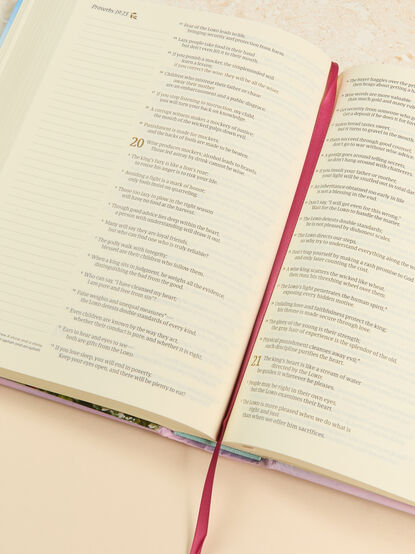 Proverbs 19:23
23 Fear of the LORD leads to life,
bringing security and protection from harm.
24 Lazy people take food in their hand
but don't even lift it to their mouth.
25 If you punish a mocker, the simpleminded will
learn a lesson;
if you correct the wise, they will be all the wiser.
26 Children who mistreat their father or chase
away their mother
are an embarrassment and a public disgrace.
27 If you stop listening to instruction, my child,
you will turn your back on knowledge.
28 A corrupt witness makes a mockery of justice;
the mouth of the wicked gulps down evil.
29 Punishment is made for mockers,
and the backs of fools are made to be beaten.
20 Wine produces mockers; alcohol leads to brawls.
Those led astray by drink cannot be wise.
2 The king's fury is like a lion's roar;
to rouse his anger is to risk your life.
3 Avoiding a fight is a mark of honor;
only fools insist on quarreling.
4 Those too lazy to plow in the right season
will have no food at the harvest.
5 Though good advice lies deep within the heart,
a person with understanding will draw it out.
6 Many will say they are loyal friends,
but who can find one who is truly reliable?
7 The godly walk with integrity;
blessed are their children who follow them.
8 When a king sits in judgment, he weighs all the evidence,
distinguishing the bad from the good.
9 Who can say, "I have cleansed my heart;
I am pure and free from sin"?
10 False weights and unequal measures—
the LORD detests double standards of every kind.
11 Even children are known by the way they act,
whether their conduct is pure, and whether it is right.
12 Ears to hear and eyes to see—
both are gifts from the LORD.
13 If you love sleep, you will end in poverty.
Keep your eyes open, and there will be plenty to eat!
14 The buyer haggles over the price,
then brags about getting a
15 Wise words are more valuable
than much gold and many
16 Get security from someone who
Get a deposit if he does it for
17 Stolen bread tastes sweet,
but it turns to gravel in the mouth.
18 Plans succeed through good counsel;
don't go to war without wise advice.
19 A gossip goes around telling secrets,
so don't hang around with chatterers.
20 If you insult your father or mother,
your light will be snuffed out in total
21 An inheritance obtained too early in life
is not a blessing in the end.
22 Don't say, "I will get even for this wrong."
Wait for the LORD to handle the matter.
23 The LORD detests double standards;
he is not pleased by dishonest scales.
24 The LORD directs our steps,
so why try to understand everything along the
25 Don't trap yourself by making a rash promise to God
and only later counting the cost.
26 A wise king scatters the wicked like wheat,
then runs his threshing wheel over them.
27 The LORD's light penetrates the human spirit,
exposing every hidden motive.
28 Unfailing love and faithfulness protect the king;
his throne is made secure through love.
29 The glory of the young is their strength;
the gray hair of experience is the splendor of the old.
30 Physical punishment cleanses away evil;
such discipline purifies the heart.
21 The king's heart is like a stream of water
directed by the LORD;
he guides it wherever he pleases.
2 People may be right in their own eyes,
but the LORD examines their heart.
3 The LORD is more pleased when we do what is
right and just
than when we offer him sacrifices.